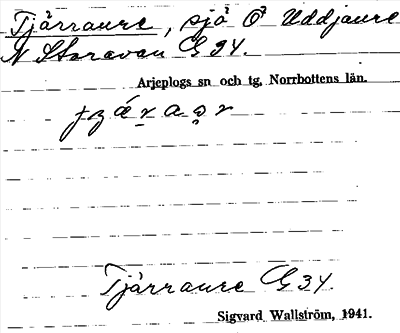 Tjårraure, sjö Ö Uddjaure
N Storavan G 34.
Arjeplogs sn och tg, Norrbottens län.
Tjårraure G 34.
Sigvard Wallström, 1941.